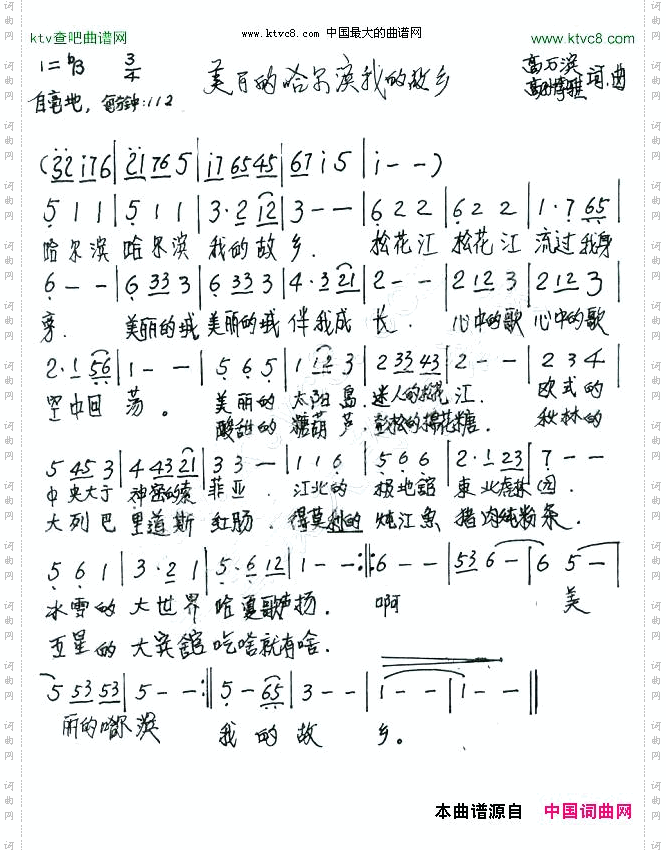 ktv查吧曲谱网 www.ktvc8.com 中国最大的曲谱网 www.ktvc8.com
1=♭B 3/4 美丽的哈尔滨我的故乡 高万滨
自豪地，每分钟:112 词曲
(32 i76|2i 765|i7 6545|67i5|i--)
5 1 1|5 1 1|3·2 12|3--|6 2 2|6 2 2|1·7 65|
哈尔滨 哈尔滨 我的故乡. 松花江 松花江 流过我身
6--|6 33 3|6 33 3|4·3 21|2--|2 12 3|2 12 3|
旁. 美丽的城 美丽的城 伴我成长. 心中的歌 心中的歌
2·1 56|1--|5 6 5|1 12 3|2 33 43|2--|2 3 4|
空中回荡。 美丽的 太阳岛.迷人的松花江. 欧式的
酸甜的 糖葫芦.彭松的棉花糖. 秋林的
5 45 3|4 43 21|3 3-|1 1 6|5 6 6|2·1 23|7--|
中央大于 神密的索菲亚. 江北的 极地馆 東北虎林园.
大列巴 里道斯 红肠. 得莫利的 炖江鱼 猪肉炖粉条.
5 6 1|3·2 1|5·6 12|1--:‖:6--|53 6-|6 5-|
冰雪的 大世界 哈夏歌声扬. 啊 美
五星的 大宾舘 吃啥就有啥.
5 53 53|5--:‖5-65|3--|1--|1--‖
丽的哈尔滨 我的故乡。
本曲谱源自 中国词曲网